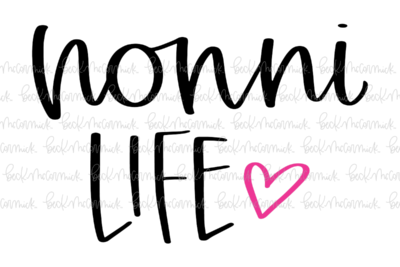 nonni
LIFE